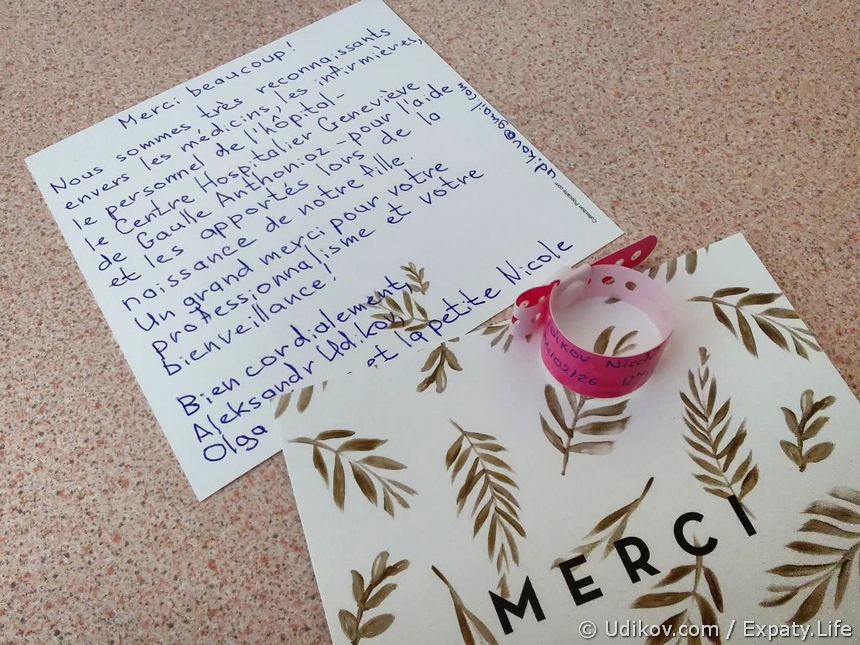 Merci beaucoup!
Nous sommes très reconnaissants
envers les médicins, les infirmières,
le personnel de l'hôpital-
le Centre Hospitalier Geneviève
de Gaulle Anthonioz - pour l'aide
et les apportés lors de la
naissance de notre fille.
Un grand merci pour votre
professionnalisme et votre
bienveillance!
Bien cordialement,
Aleksandr Udikov,
Olga et la petite Nicole
udikov@gmail.com
Udikov Nicole
MERCI
© Udikov.com / Expaty.Life